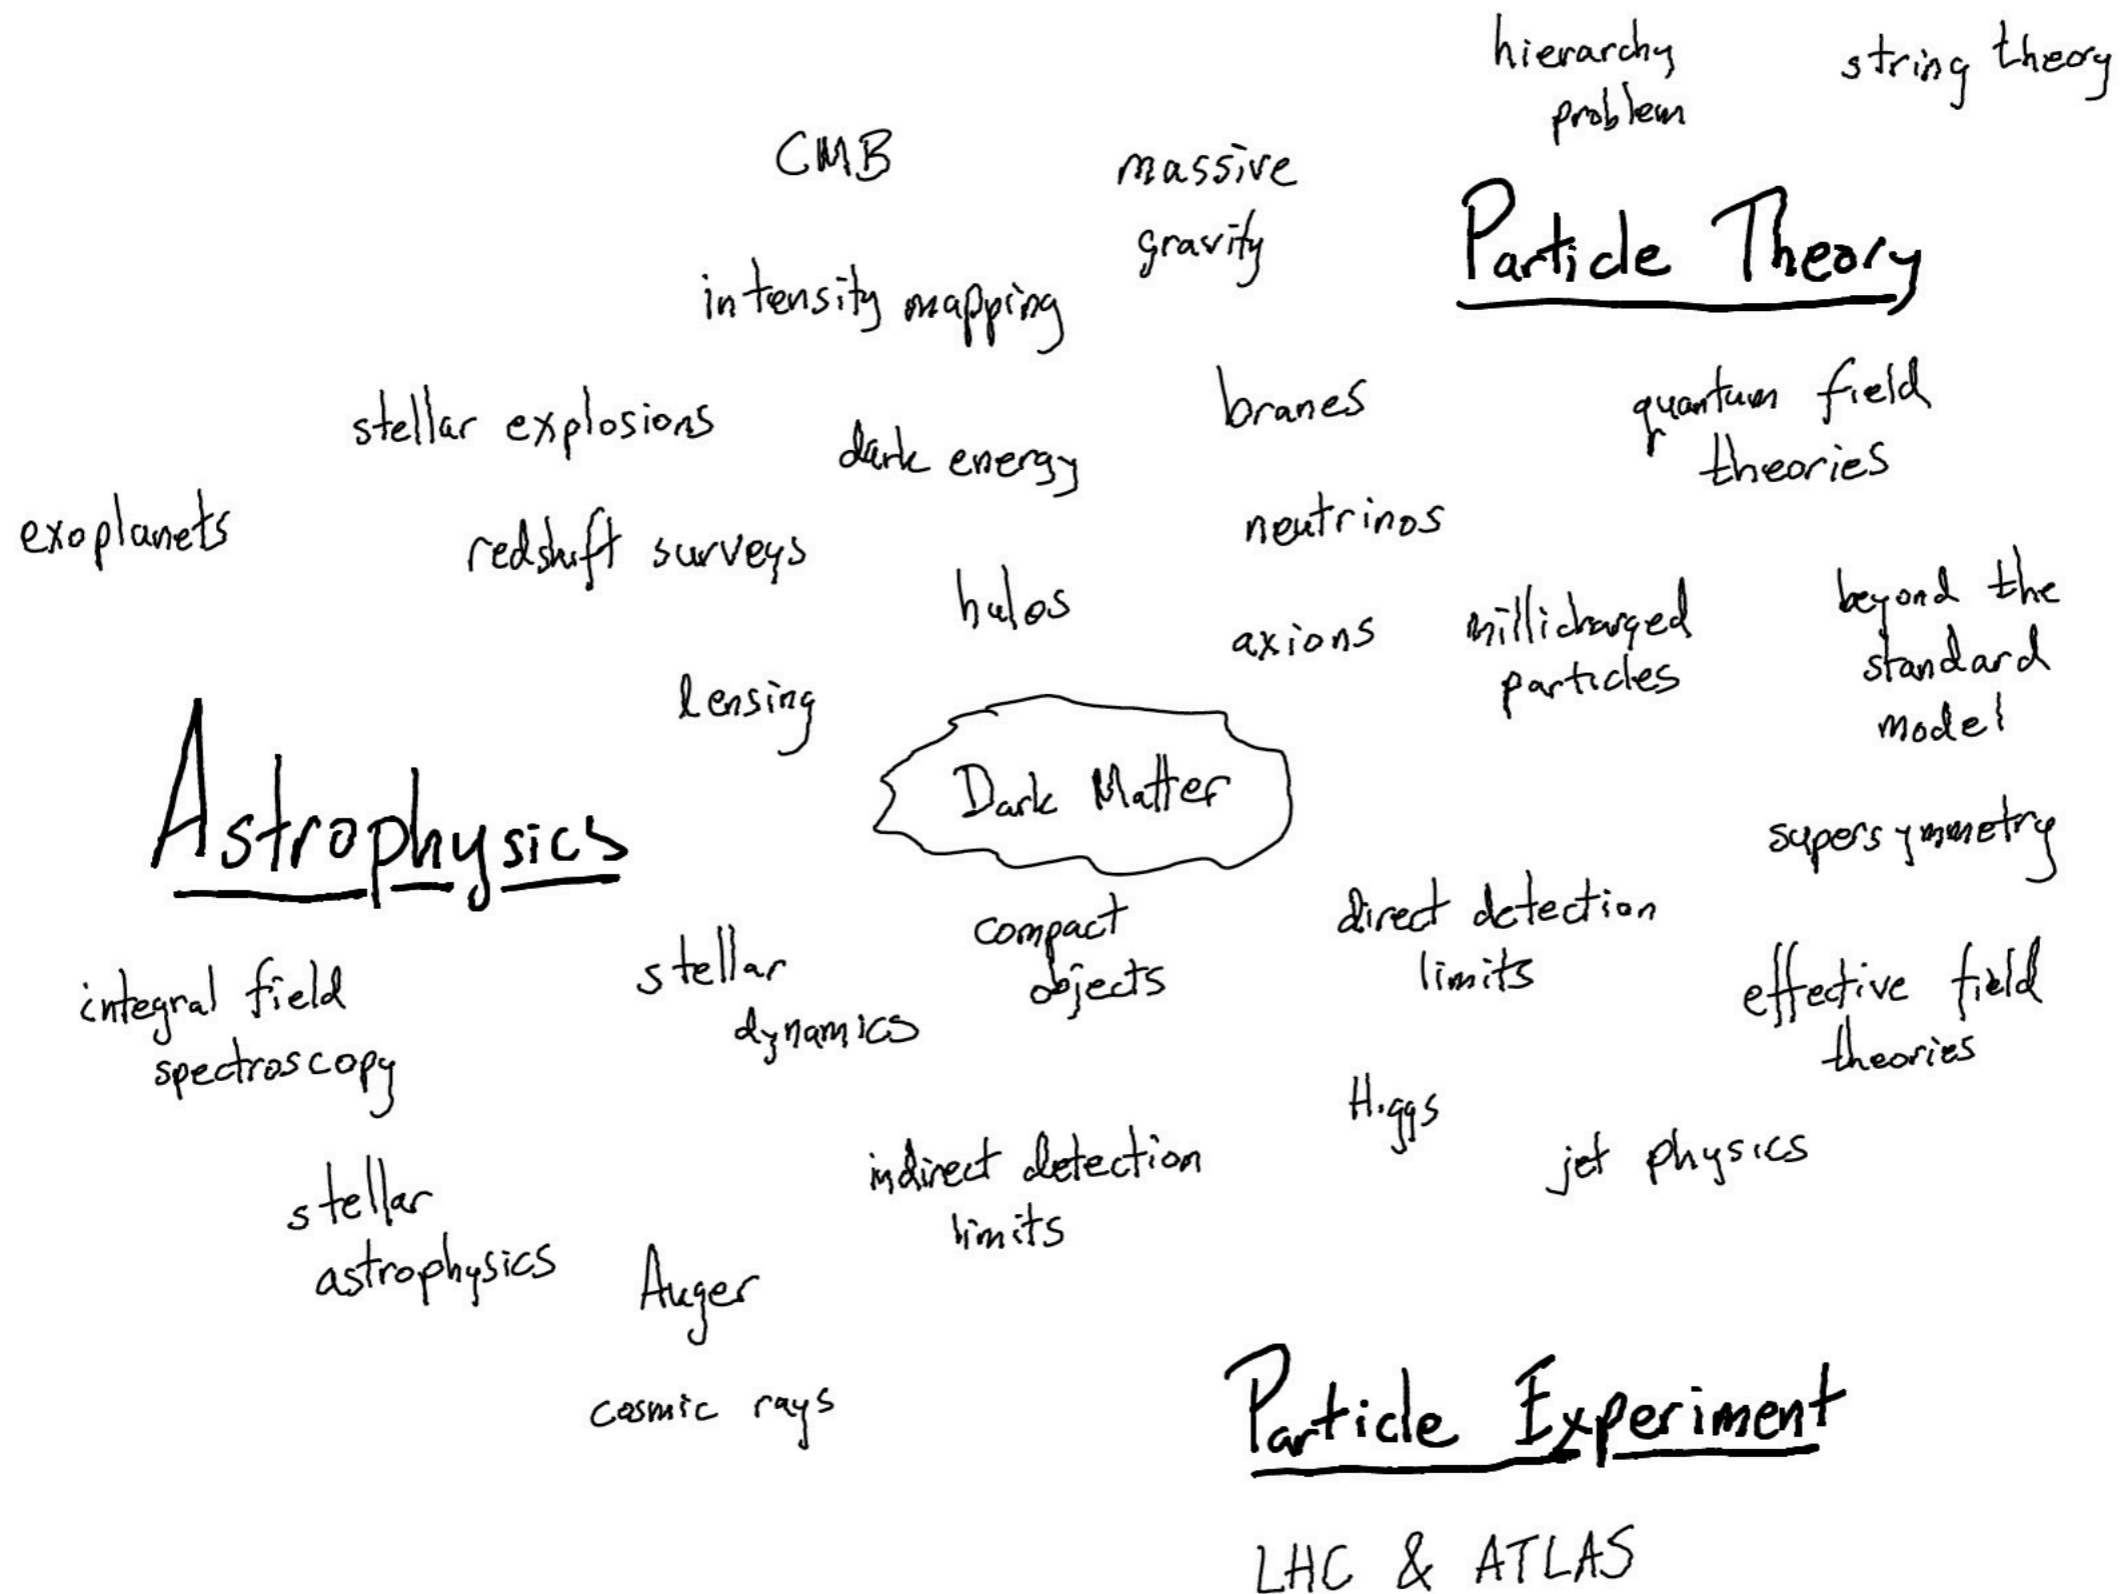 hierarchy
problem
string theory
CMB
massive
gravity
Particle Theory
intensity mapping
stellar explosions
dark energy
branes
quantum field
theories
exoplanets
redshift surveys
neutrinos
halos
axions
millicharged
particles
beyond the
standard
model
lensing
Astrophysics
Dark Matter
supersymmetry
integral field
spectroscopy
stellar
dynamics
compact
objects
direct detection
limits
effective field
theories
Higgs
jet physics
indirect detection
limits
stellar
astrophysics
Auger
cosmic rays
Particle Experiment
LHC & ATLAS